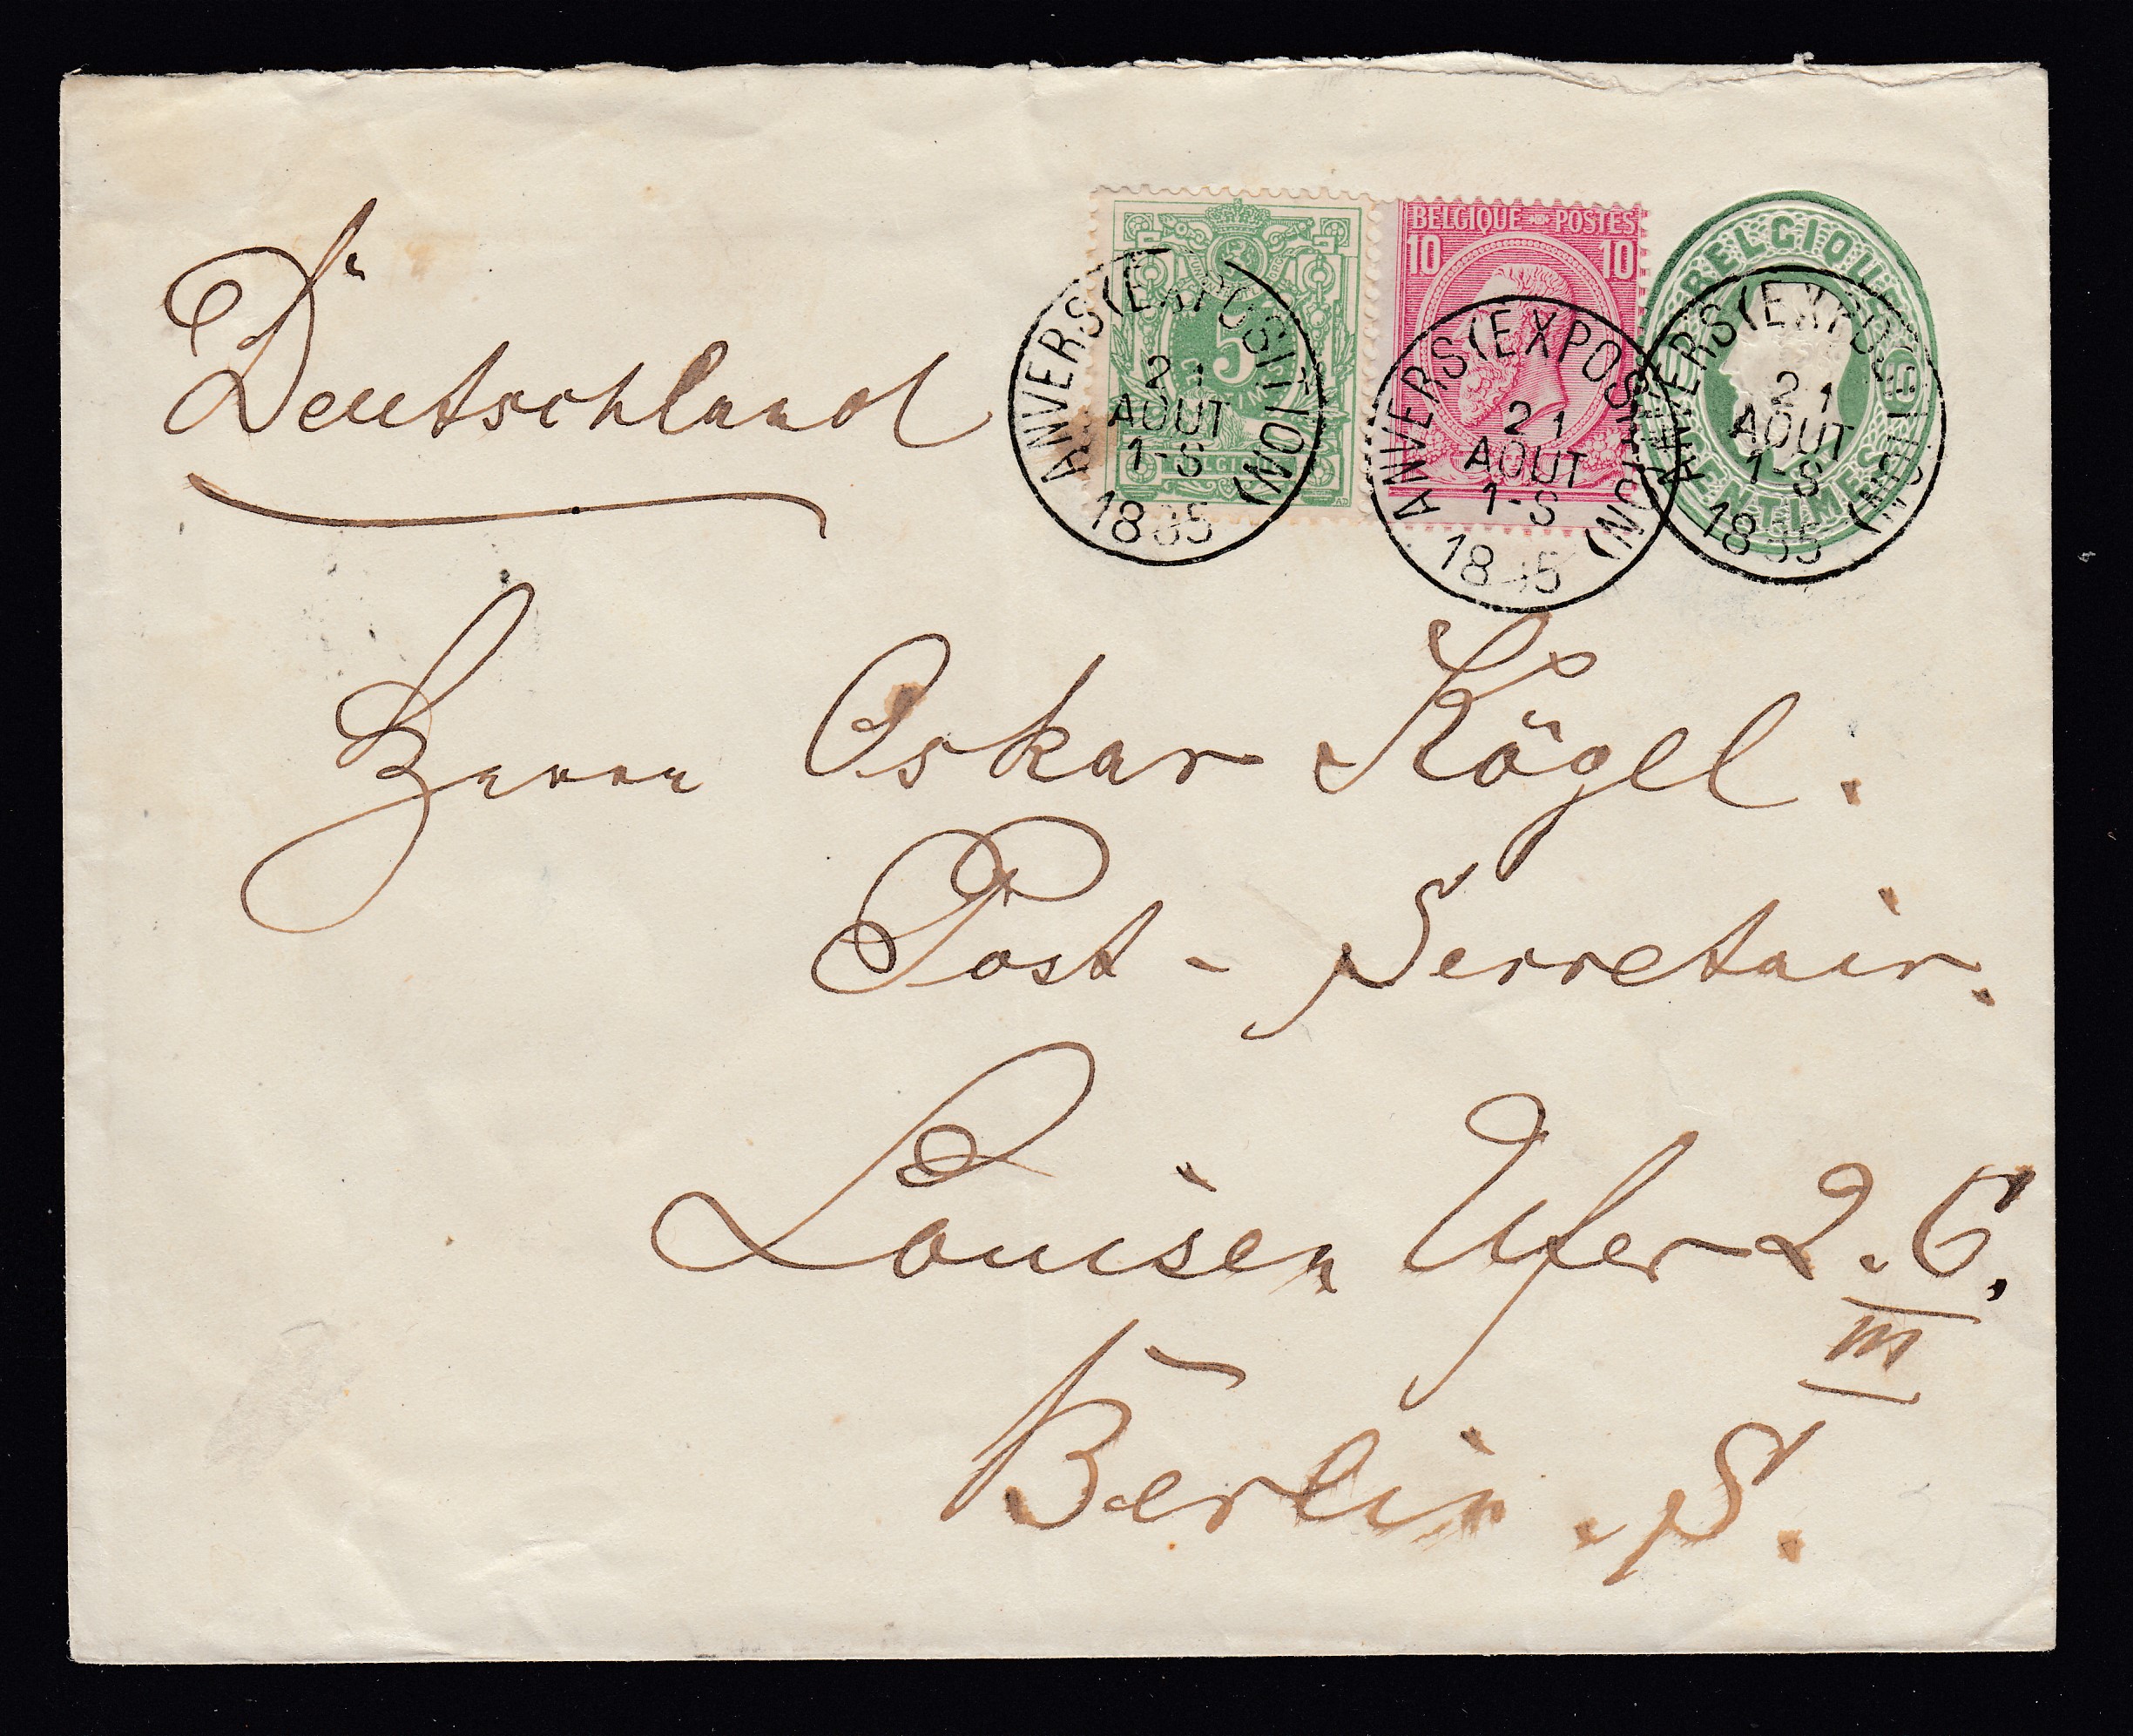 5
BELGIQUE
BELGIQUE POSTES
10 10
BELGIQUE
10 CENTIMES 10
ANVERS (EXPOSITION)
21
AOUT
1-S
1885
ANVERS (EXPOSITION)
21
AOUT
1-S
1885
ANVERS (EXPOSITION)
21
AOUT
1-S
1885
Deutschland
Herrn Oskar Kögel.
Post-Secretair.
Louisen Ufer 2. C.
III
Berlin. S.